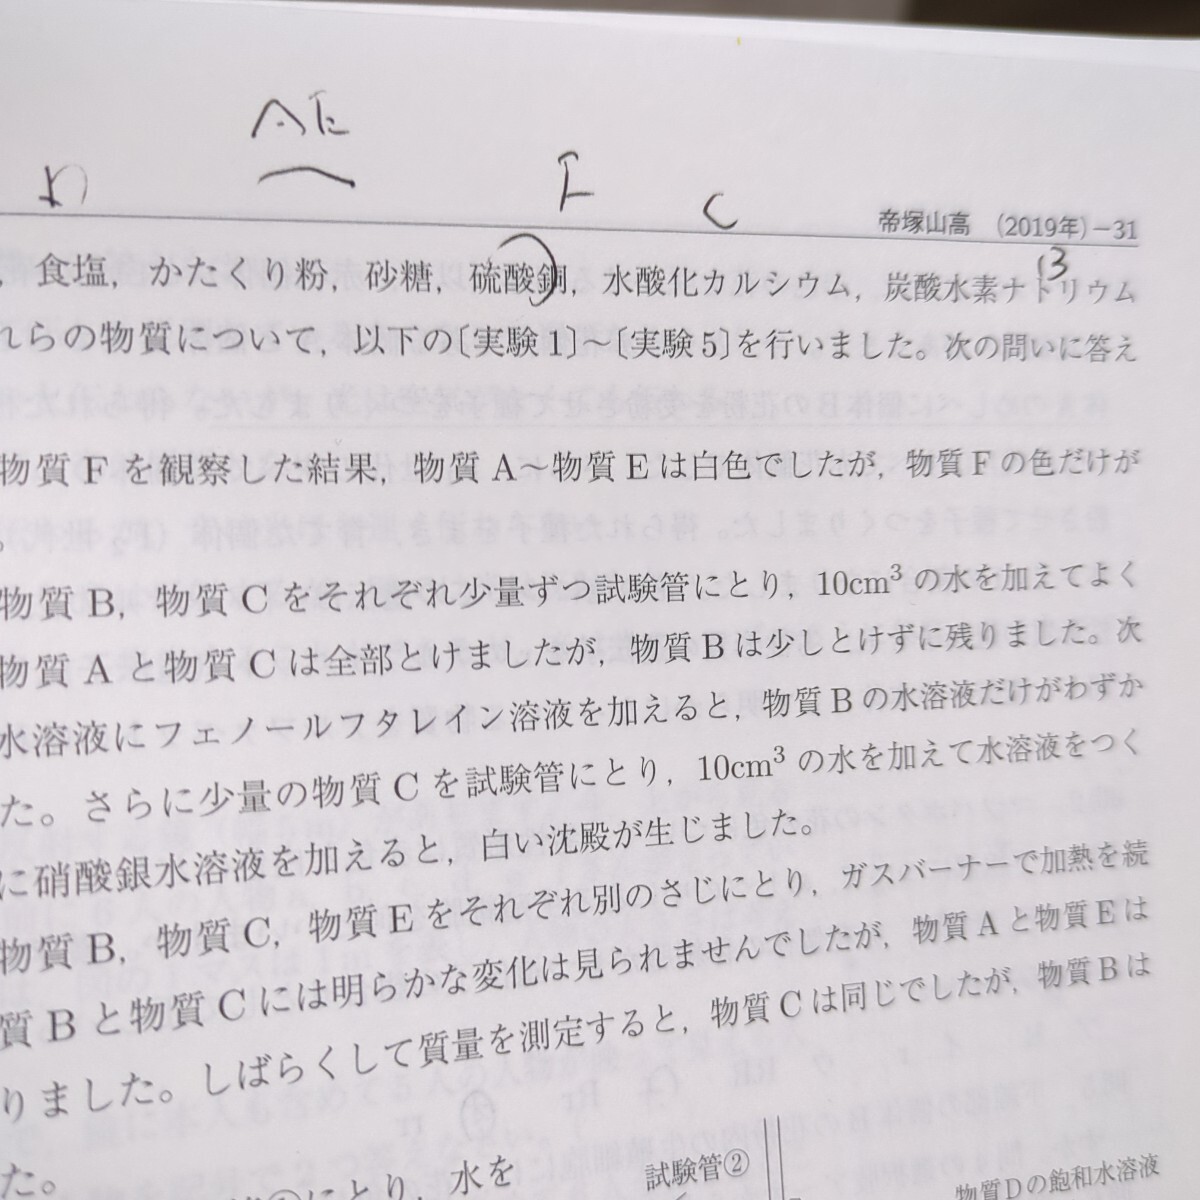 AE
F
C
帝塚山高 (2019年)－31
B
，食塩，かたくり粉，砂糖，硫酸銅，水酸化カルシウム，炭酸水素ナトリウム
れらの物質について，以下の〔実験1〕～〔実験5〕を行いました。次の問いに答え
物質Fを観察した結果，物質A～物質Eは白色でしたが，物質Fの色だけが
。
物質B，物質Cをそれぞれ少量ずつ試験管にとり，10cm³の水を加えてよく
物質Aと物質Cは全部とけましたが，物質Bは少しとけずに残りました。次
水溶液にフェノールフタレイン溶液を加えると，物質Bの水溶液だけがわずか
た。さらに少量の物質Cを試験管にとり，10cm³の水を加えて水溶液をつく
に硝酸銀水溶液を加えると，白い沈殿が生じました。
物質B，物質C，物質Eをそれぞれ別のさじにとり，ガスバーナーで加熱を続
質Bと物質Cには明らかな変化は見られませんでしたが，物質Aと物質Eは
りました。しばらくして質量を測定すると，物質Cは同じでしたが，物質Bは
た。
にとり，水を
試験管②
物質Dの飽和水溶液